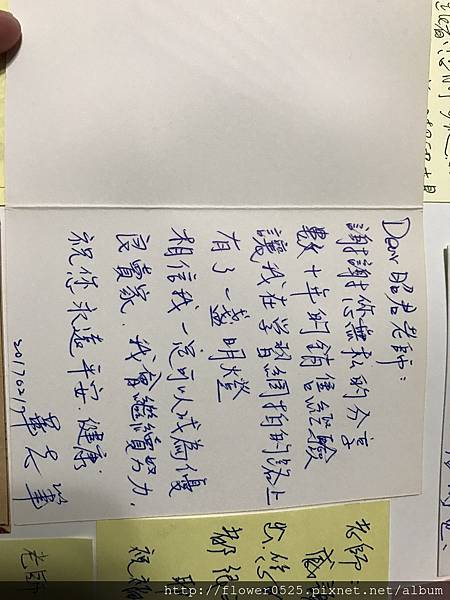 Dear 昭君老師:
謝謝您無私的分享
數十年的銷售經驗
讓我在學習網拍的路上
有了一盞明燈
相信我一定可以成為優
良賣家.我會繼續努力.
祝您 永遠平安.健康.
20170217
老師:
老師
http://flower0525.pixnet.net/album